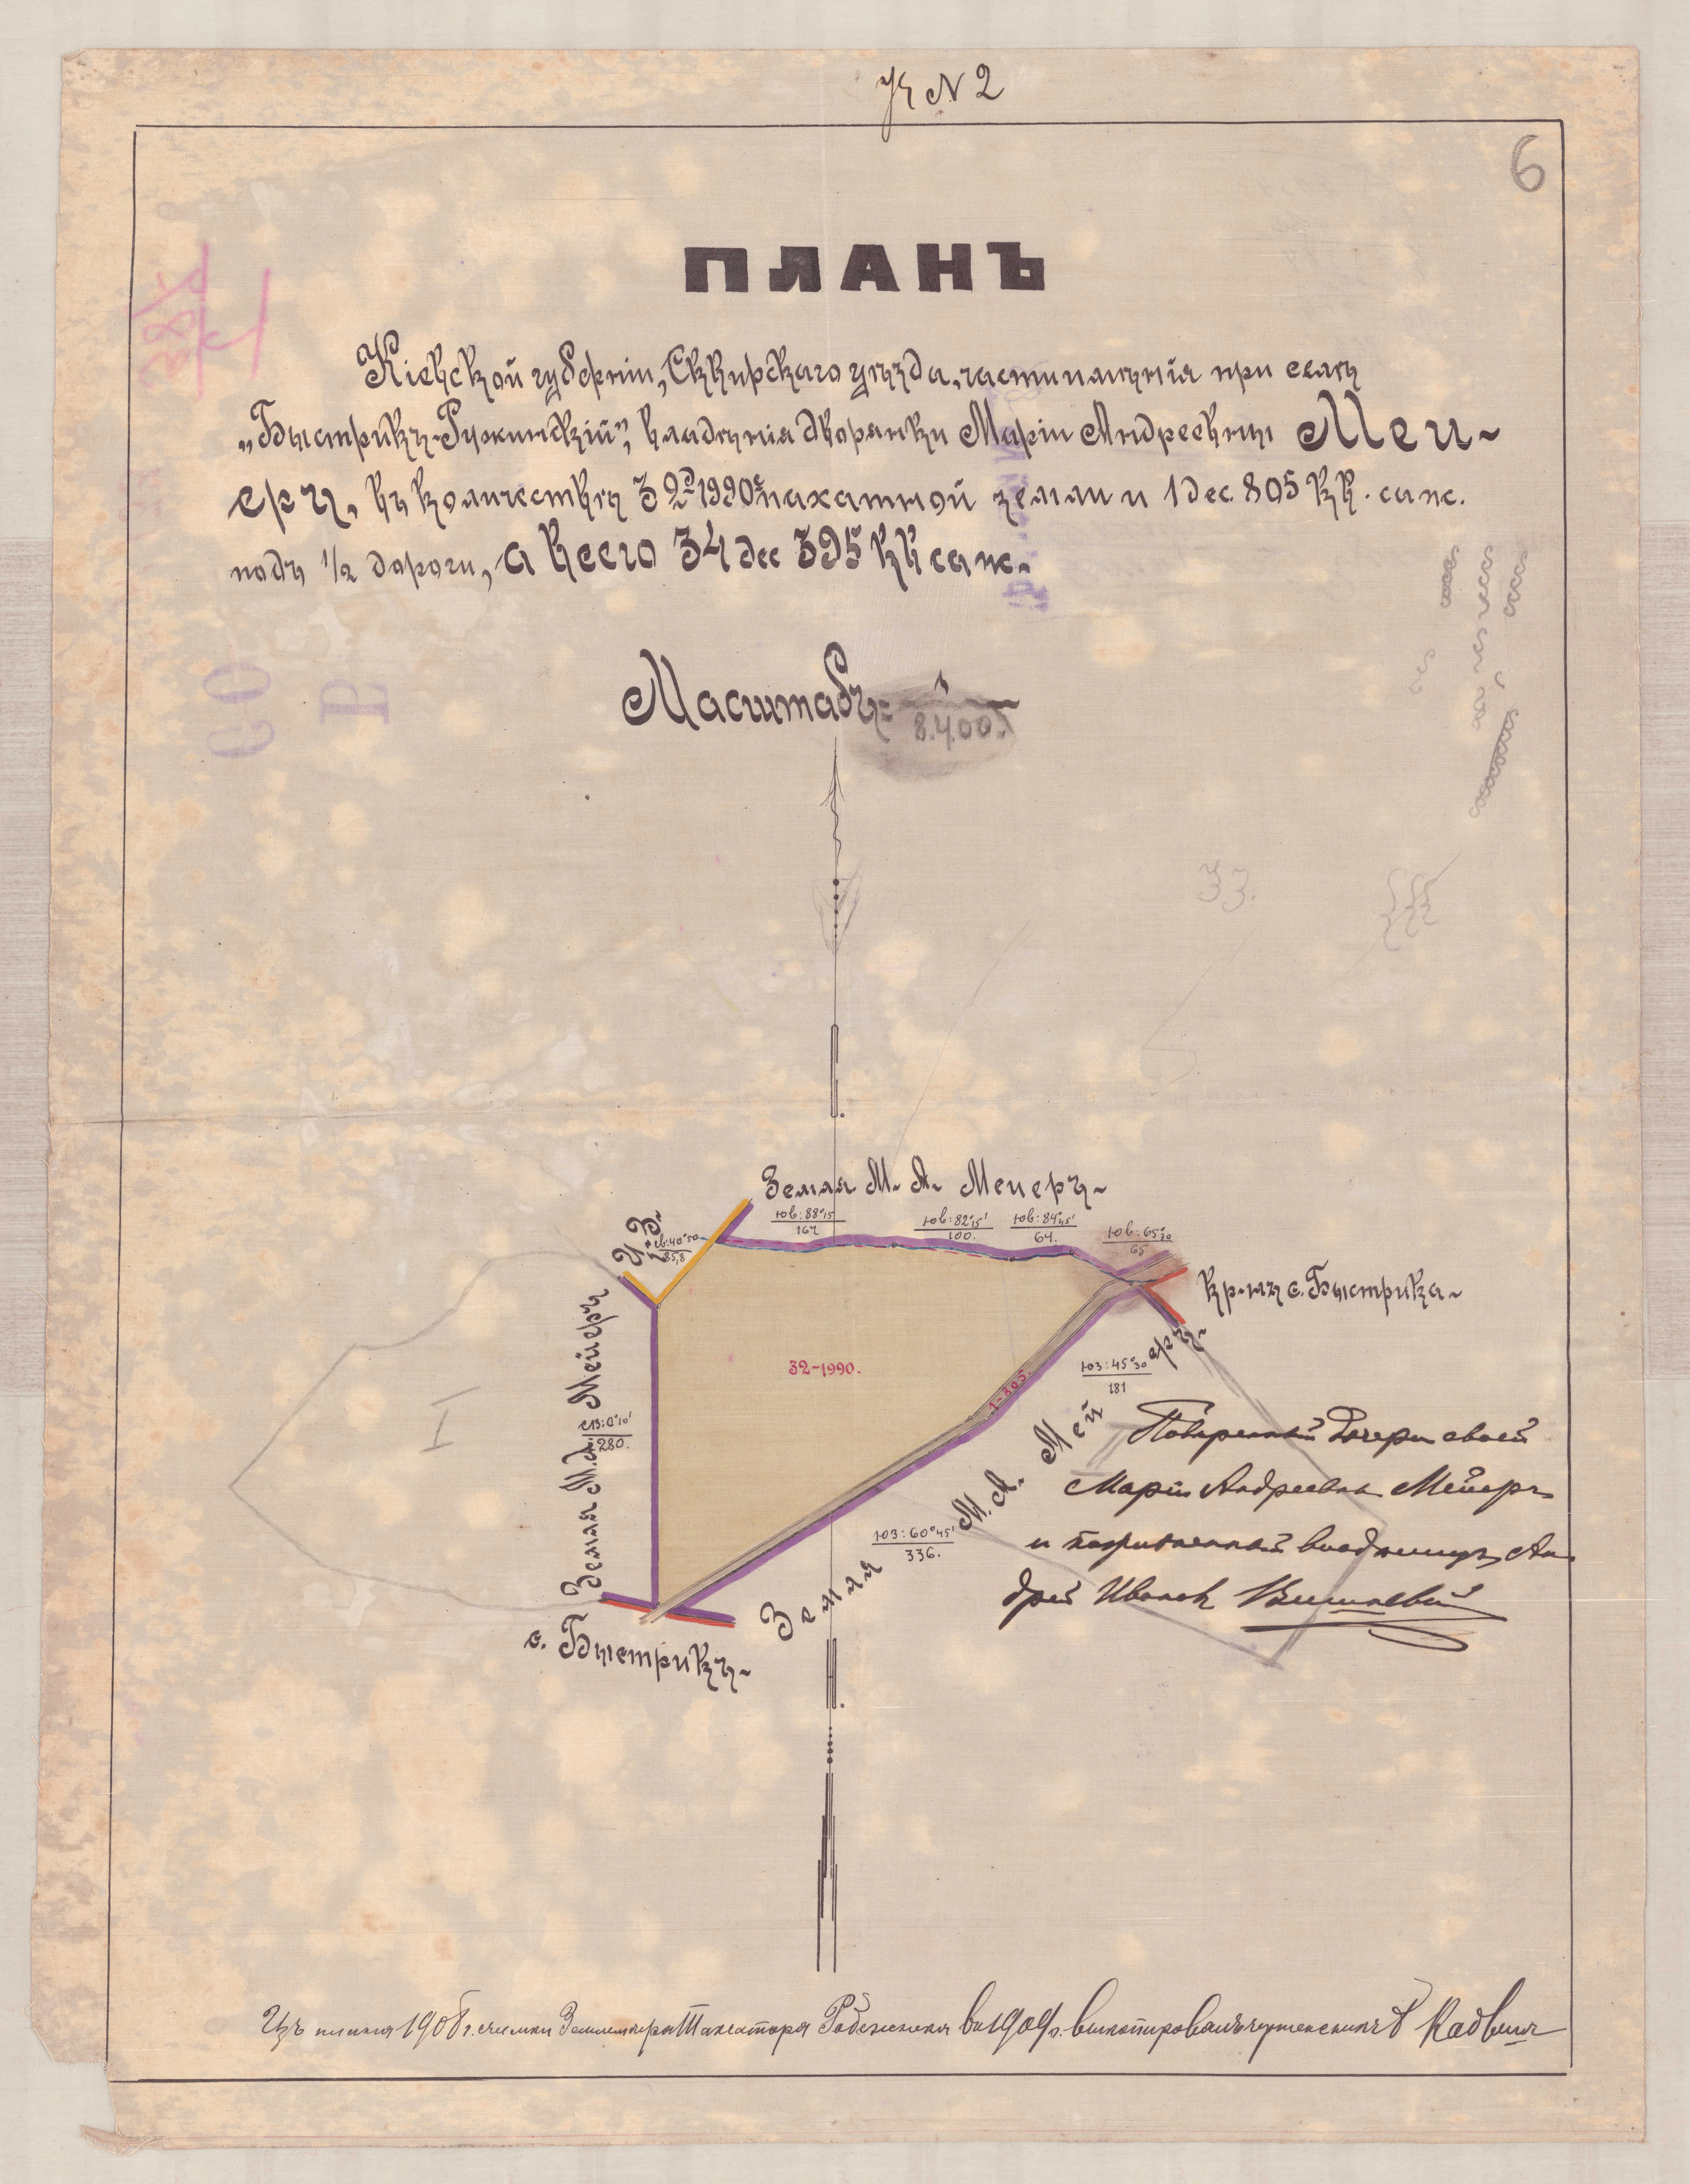 Уч N 2
6
ПЛАНЪ
Кіевской губерніи, Сквирскаго уѣзда, части имѣнія при селѣ
„Быстрикъ-Ружинскій", владѣнія дворянки Маріи Андреевны Меи-
еръ, въ количествѣ 32д 1990с пахатной земли и 1 дес. 805 кв. саж.
подъ 1/2 дороги, а всего 34 дес 395 кв саж.
Масштабъ = 1/8.400.
33.
Земля М. А. Меиеръ
Ч. З.
св:40°50
85,8
юв:88°15
167
юв:82°15'
100.
юв:84°45'
64.
юв:65°30
65
кр-нъ с. Быстрика
Земля М. А. Мейеръ
св:0°10'
280.
32-1990.
1-805.
юз:45°30
181
юз:60°45'
336.
Земля М. А. Мейеръ
с. Быстрикъ
I
Повѣренный дочери своей
Маріи Андреевны Мейеръ
и владѣлецъ Ан-
дрей Ивановъ
Изъ плана 1908 г. съемки Землемѣра Таксатора въ 1909 г. выкопировалъ